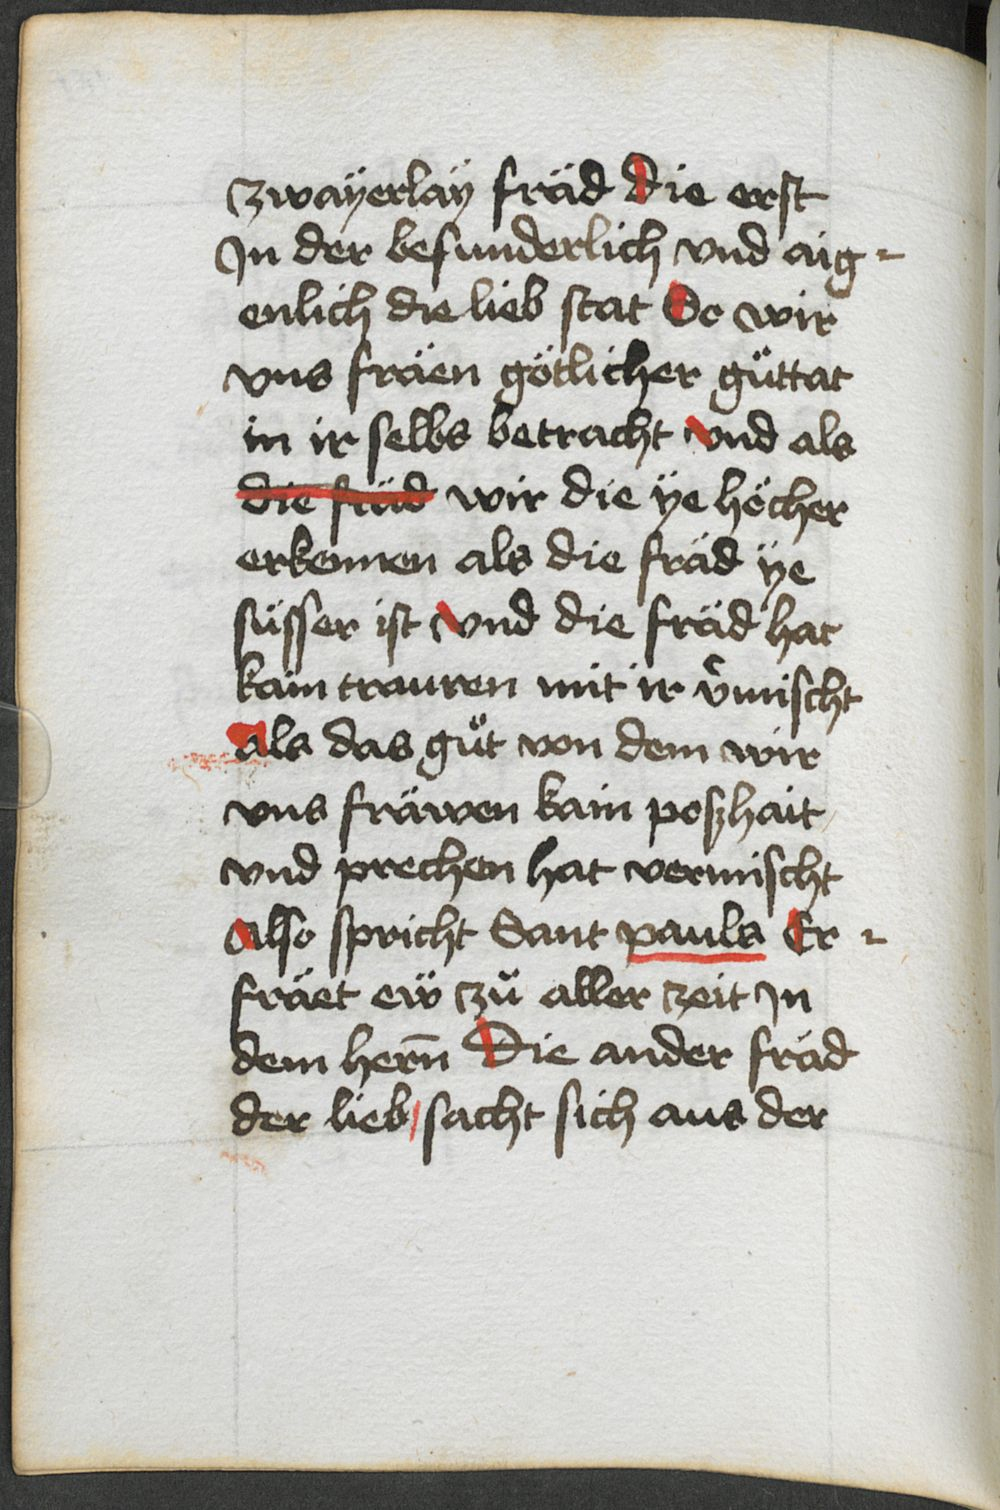 zwaÿerlaÿ fräd die erst
Jn der besunderlich vnd aig⸗
enlich die lieb stat So wir
vns fräen götlicher gu̎ttat
in ir selbs betracht vnd als
die fräd wir die ÿe höcher
erkennen als die fräd ÿe
süsser ist vnd die fräd hat
kain trauren mit ir v̾mischt
als das gu̎t von dem wir
vns fräwen kain poszhait
vnd prechen hat vermischt
also spricht Sant pauls Er⸗
fräet eẅ zu̎ aller zeit Jn
dem hern̄ Die ander fräd
der lieb / sacht sich aus der